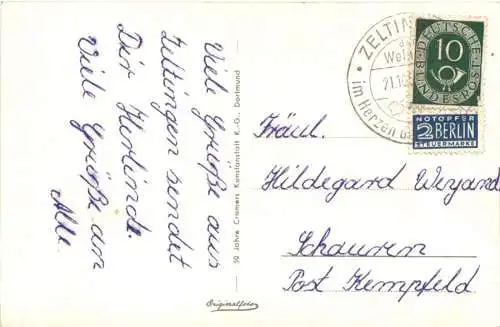 Viele Grüße aus
Zeltingen sendet
Dir Herlinde.
Viele Grüße an
Alle.
59 Jahre Cramers Kunstanstalt K.-G., Dortmund
Originalfoto
ZELTIN
Wei
21.10
im Herzen d
DEUTSCHE
BUNDESPOST
10
NOTOPFER
2 BERLIN
STEUERMARKE
Fräul.
Hildegard Weyand
Schauren
Post Kempfeld